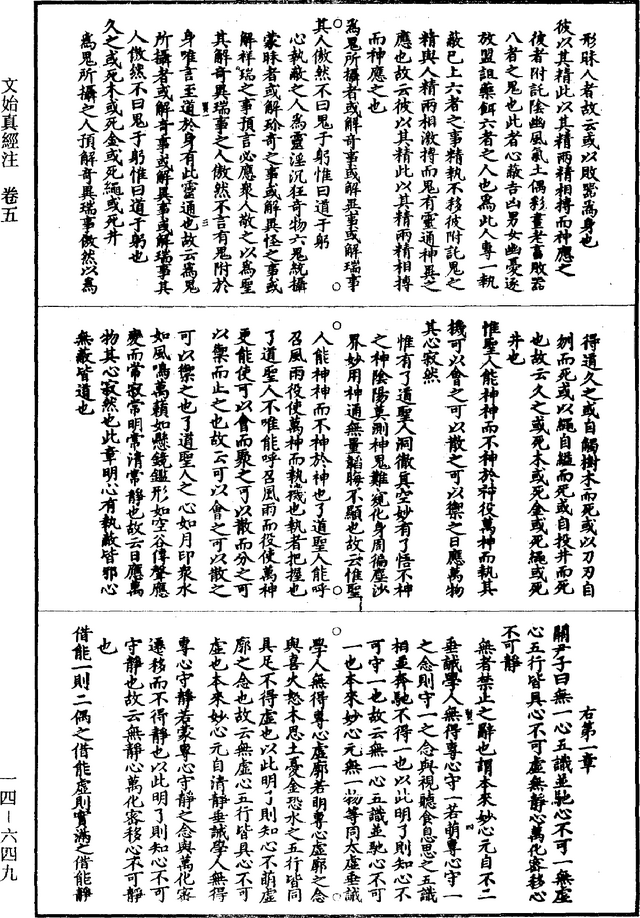 形昧人者故云或以敗器為身也
彼以其精此以其精兩精相搏而神應之
使者附託陰幽風氣土偶彩畫老畜敗器
八者之鬼也此者心蔽吉凶男女幽憂逐
放盟詛藥餌六者之人也為此人專一執
蔽已上六者之事精執不移彼附託鬼之
精與人精兩相激搏而鬼有靈通神異之
應也故云彼以其精此以其精兩精相搏
而神應之也
為鬼所攝者或解奇事或解異事或解瑞事
其人傲然不曰鬼于躬惟曰道于躬
心執蔽之人為靈淫沉狂奇物六鬼統攝
蒙昧者或解玠奇之事或解異怪之事或
解祥瑞之事預言必應衆人敬之以為聖
其解奇異瑞事之人傲然不言有鬼附於
身唯言至道於身有此靈通也故云為鬼
所攝者或解奇事或解異事或解瑞事其
人傲然不曰鬼于躬惟曰道于躬也
久之或死木或死金或死繩或死井
為鬼所攝之人預解奇異瑞事傲然以為
得道久之或自觸樹木而死或以刀刃自
刎而死或以繩自縊而死或自投井而死
也故云久之或死木或死金或死繩或死
井也
惟聖人能神神而不神於神役萬神而執其
機可以會之可以散之可以禦之日應萬物
其心寂然
惟有了道聖人洞徹真空妙有了悟不神
之神陰陽莫測神鬼難窺化身周徧塵沙
界妙用神通無量韜晦不顯也故云惟聖
人能神神而不神於神也了道聖人能呼
召風雨役使萬神而執機也執者把握也
了道聖人不唯能呼召風雨而役使萬神
更能使可以會而聚之可以散而分之可
以禦而止之也故云可以會之可以散之
可以禦之也了道聖人之心如月印衆水
如風鳴萬籟如懸鏡鑑形如空谷傳聲應
變而常寂常明常清常靜也故云日應萬
物其心寂然也此章明心有執蔽皆邪心
無蔽皆道也
右第一章
關尹子曰無一心五識並馳心不可一無虛
心五行皆具心不可虛無靜心萬化密移心
不可靜
無者禁止之辭也謂本來妙心元自不二
垂誡學人無得專心守一若萌專心守一
之念則守一之念與視聽食息思之五識
相並奔馳不得一也以此明了則知心不
可守一也故云無一心五識並馳心不可
一也本來妙心元無一物等同太虛垂誡
學人無得專心虛廓者萌專心虛廓之念
與喜火怒木思土憂金恐水之五行皆同
具足不得虛也以此明了則知心不萌虛
廓之念也故云無虛心五行皆具心不可
虛也本來妙心元自清靜垂誡學人無得
專心守靜若蒙專心守靜之念與萬化密
遷移而不得靜也以此明了則知心不可
守靜也故云無靜心萬化密移心不可靜
也
借能一則二偶之借能虛則實滿之借能靜
文始真經注　卷五
一四－六四九